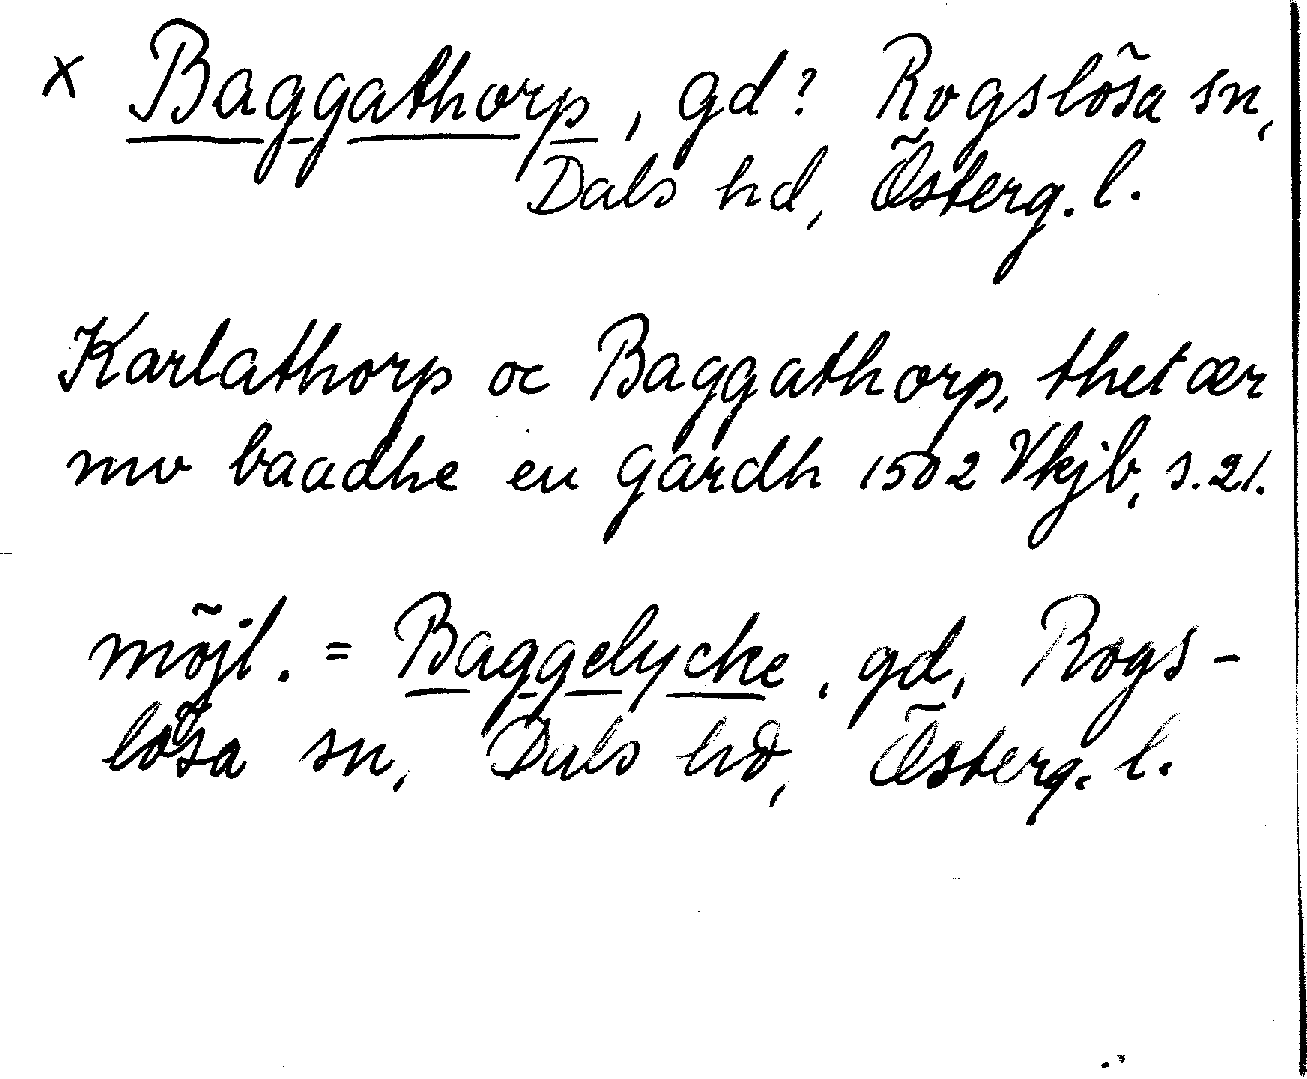 x Baggathorp, gd? Rogslösa sn,
Dals hd, Österg. l.
Karlathorp oc Baggathorp, thet ær
nw baadhe en gardh 1502 Vkjb, s. 21.
möjl. = Baggelycke, gd, Rogs-
lösa sn, Dals hd, Österg. l.